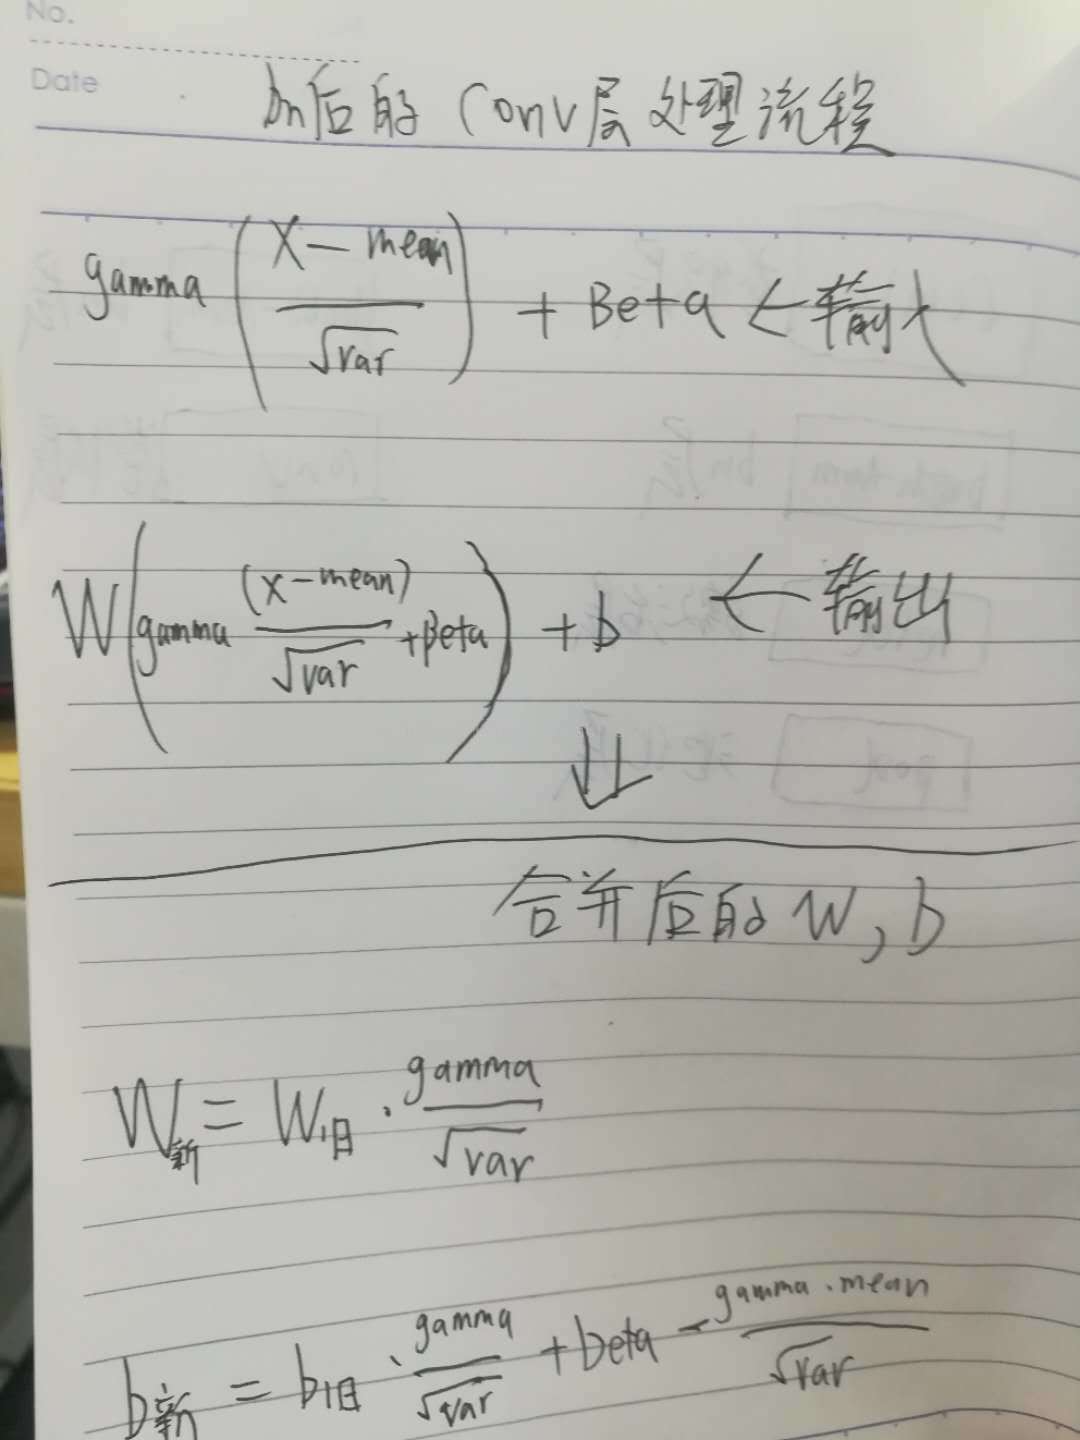 No.
Date
bn后的 Conv层处理流程
gamma (X - mean / √var) + Beta < 输入
W(gamma (x-mean) / √var + Beta) + b ← 输出
合并后的 W, b
W新 = W旧 · gamma / √var
b新 = b旧 · gamma / √var + beta - gamma · mean / √var